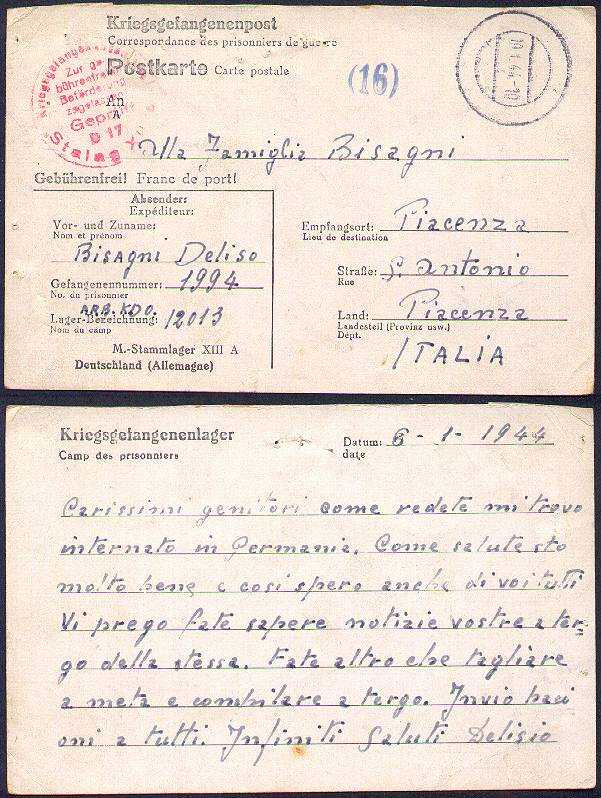 Kriegsgefangenenpost
Correspondance des prisonniers de guerre
Postkarte Carte postale
(16)
19.1.44.-10
An
A
Zur Ge-
bührenfreien
Beförderung
zugelassen
Geprüft
D 17
Stalag X
Alla Famiglia Bisagni
Gebührenfrei! Franc de port!
Absender:
Expéditeur:
Vor- und Zuname:
Nom et prénom
Bisagni Deliso
Gefangenennummer: 1994
No. du prisonnier
ARB. KDO.
Lager-Bezeichnung: 12013
Nom du camp
M.-Stammlager XIII A
Deutschland (Allemagne)
Empfangsort: Piacenza
Lieu de destination
Straße: S. Antonio
Rue
Land: Piacenza
Landesteil (Provinz usw.)
Dépt.
ITALIA
Kriegsgefangenenlager
Camp des prisonniers
Datum: 6-1-1944
date
Carissimi genitori come vedete mi trovo
internato in Germania. Come salute sto
molto bene e così spero anche di voi tutti
Vi prego fate sapere notizie vostre a ter-
go della stessa. Fate altro che tagliare
a metà e combilare a tergo. Invio baci
oni a tutti. Infiniti Saluti Delisio